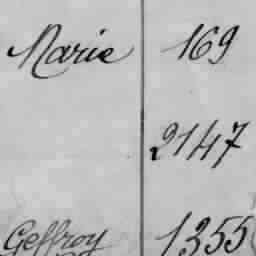 Marie 169
2147
Geffroy 1355